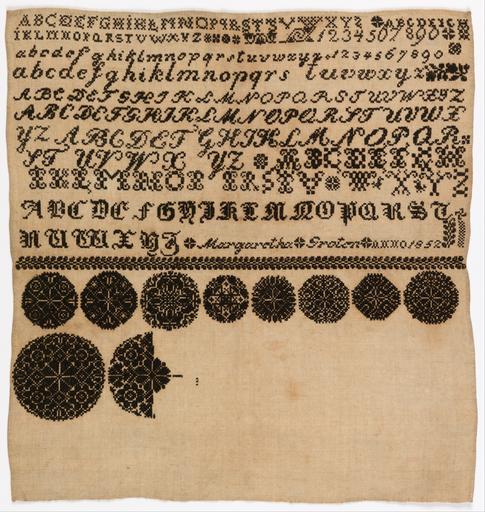 ABCDEFGHIKLMNOPQRSTUVWXYZ ABCDEFGH
IKLMNOPQRSTUVWXYZ 1234567890
abcdefghiklmnopqrstuvwxyz 1234567890
abcdefghiklmnopqrs tuvwxyz
ABCDEFGHIKLMNOPQRSTUVWXYZ
ABCDEFGHIKLMNOPQRSTUVWX
YZ ABCDEFGHIKLMNOPQR
ST UVWX YZ ABCEFGH
IKLMNOP RSTV WXYZ
ABCDEFGHIKLMNOPQRST
RUVWXYZ Margaretha Groten ANNO 1852